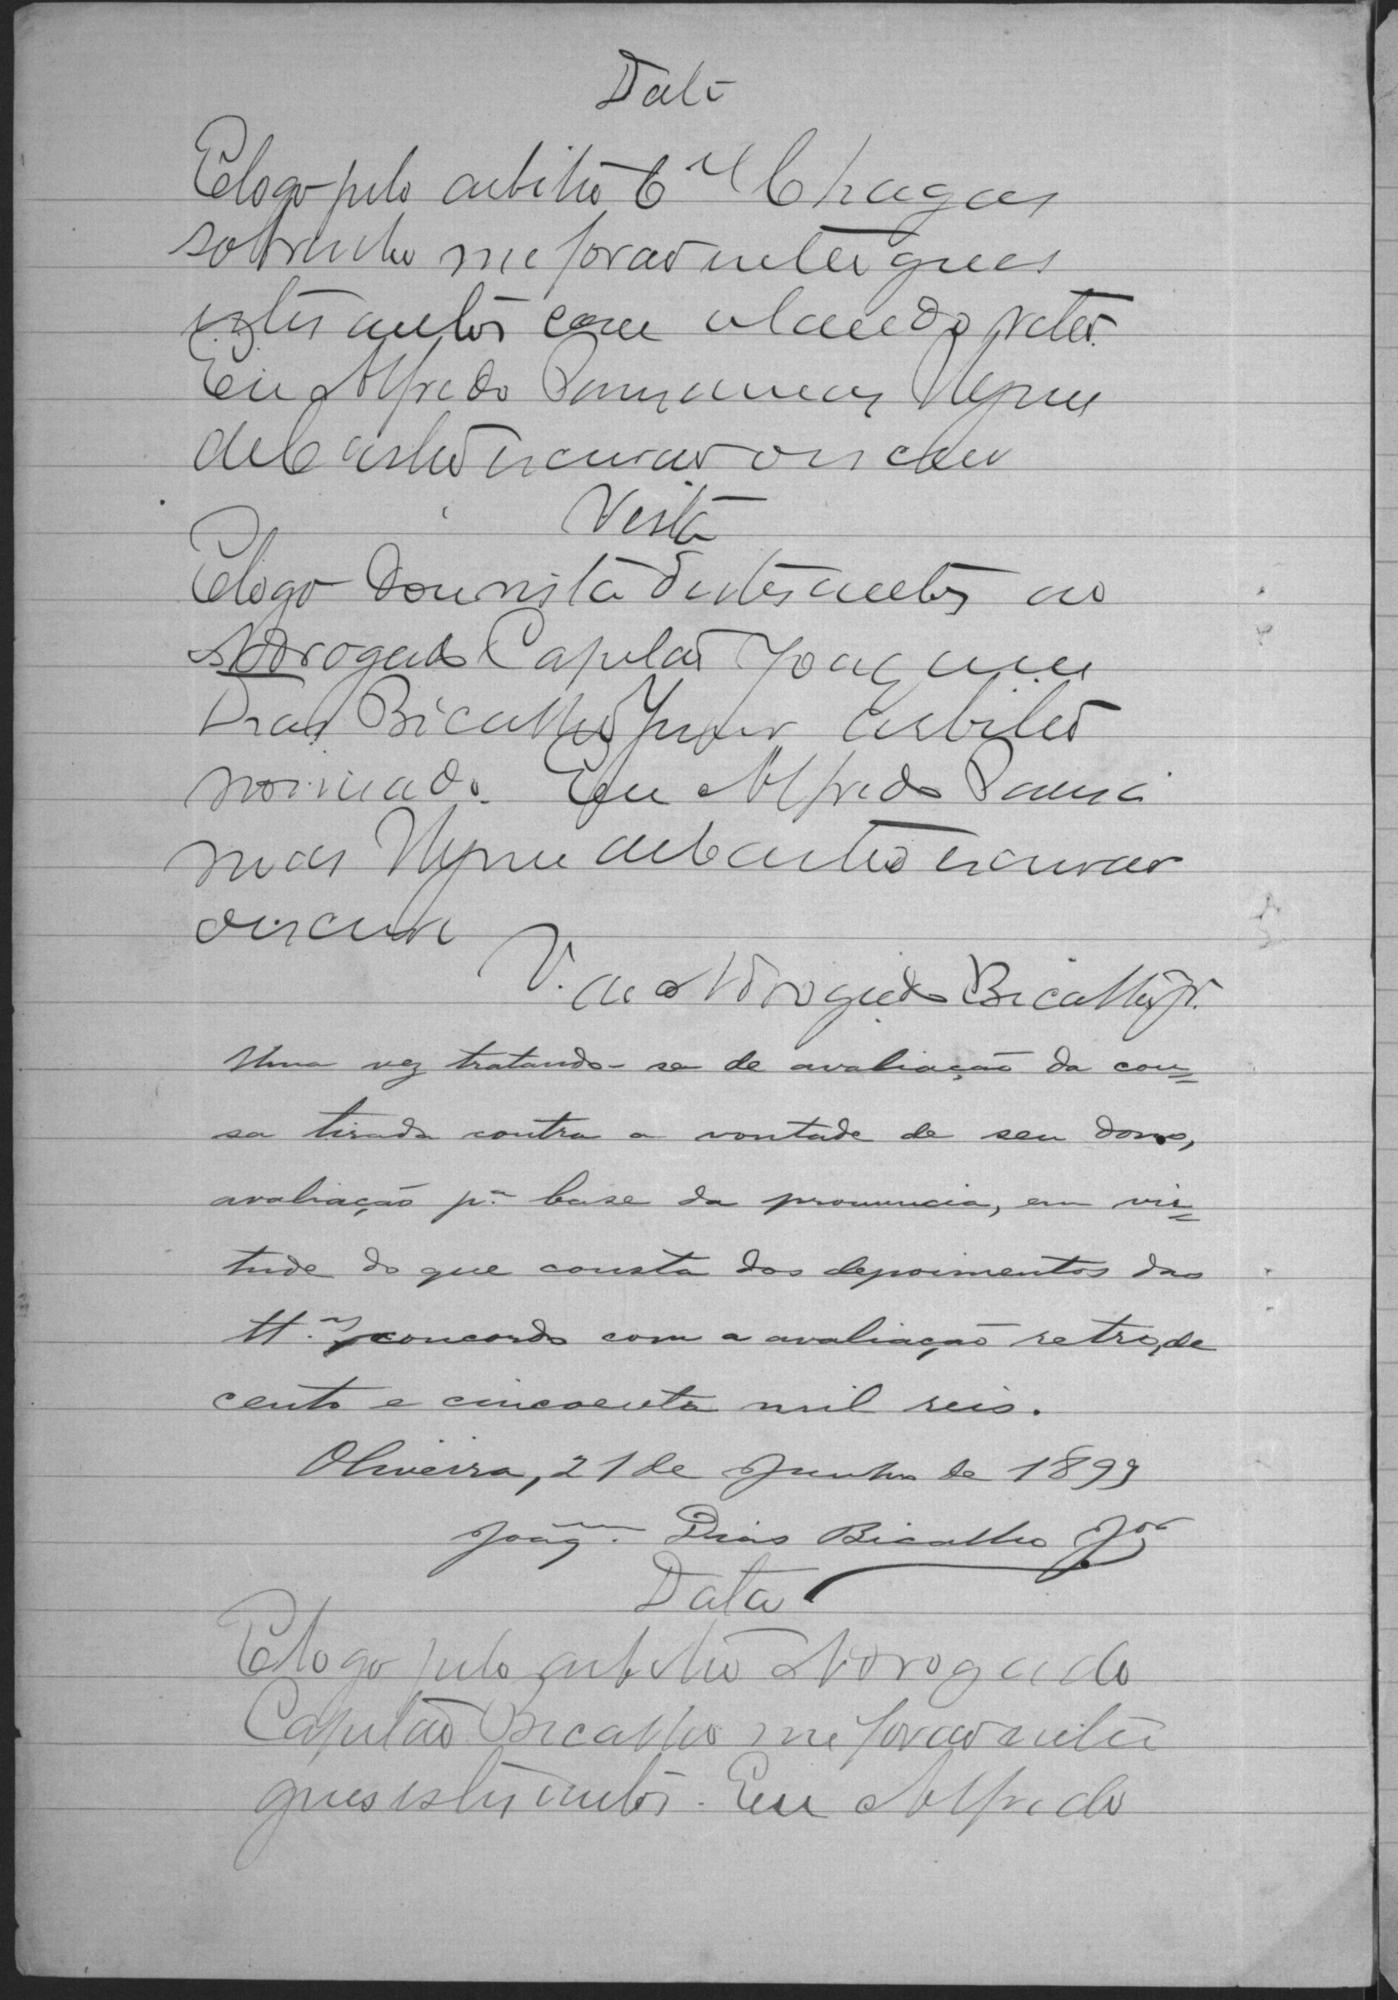 Data
E logo pelo arbitro C.el Chagas
sobrinho me forão entregues
estes autos com o laudo retro.
Eu Alfredo Paranamas Nepomu
de Castro escrivão o escrevi
Vista
E logo dou vista destes autos ao
Advogado Capitão Joaquim
Dias Bicalho Junior arbitro
nomeado. Eu Alfredo
de Castro escrivão
o escrevi
V. ao Advogado Bicalho Jr.
Uma vez tratando-se de avaliação da cou=
sa tirada contra a vontade de seu dono,
avaliação p.a base da pronuncia, em vir=
tude do que consta dos depoimentos das
tt.as, concordo com a avaliação retro, de
cento e cincoenta mil reis.
Oliveira, 21 de Junho de 1899
Joaq.m Dias Bicalho J.or
Data
E logo pelo arbitro Advogado
Capitão Bicalho me forão entre
gues estes autos. Eu Alfredo